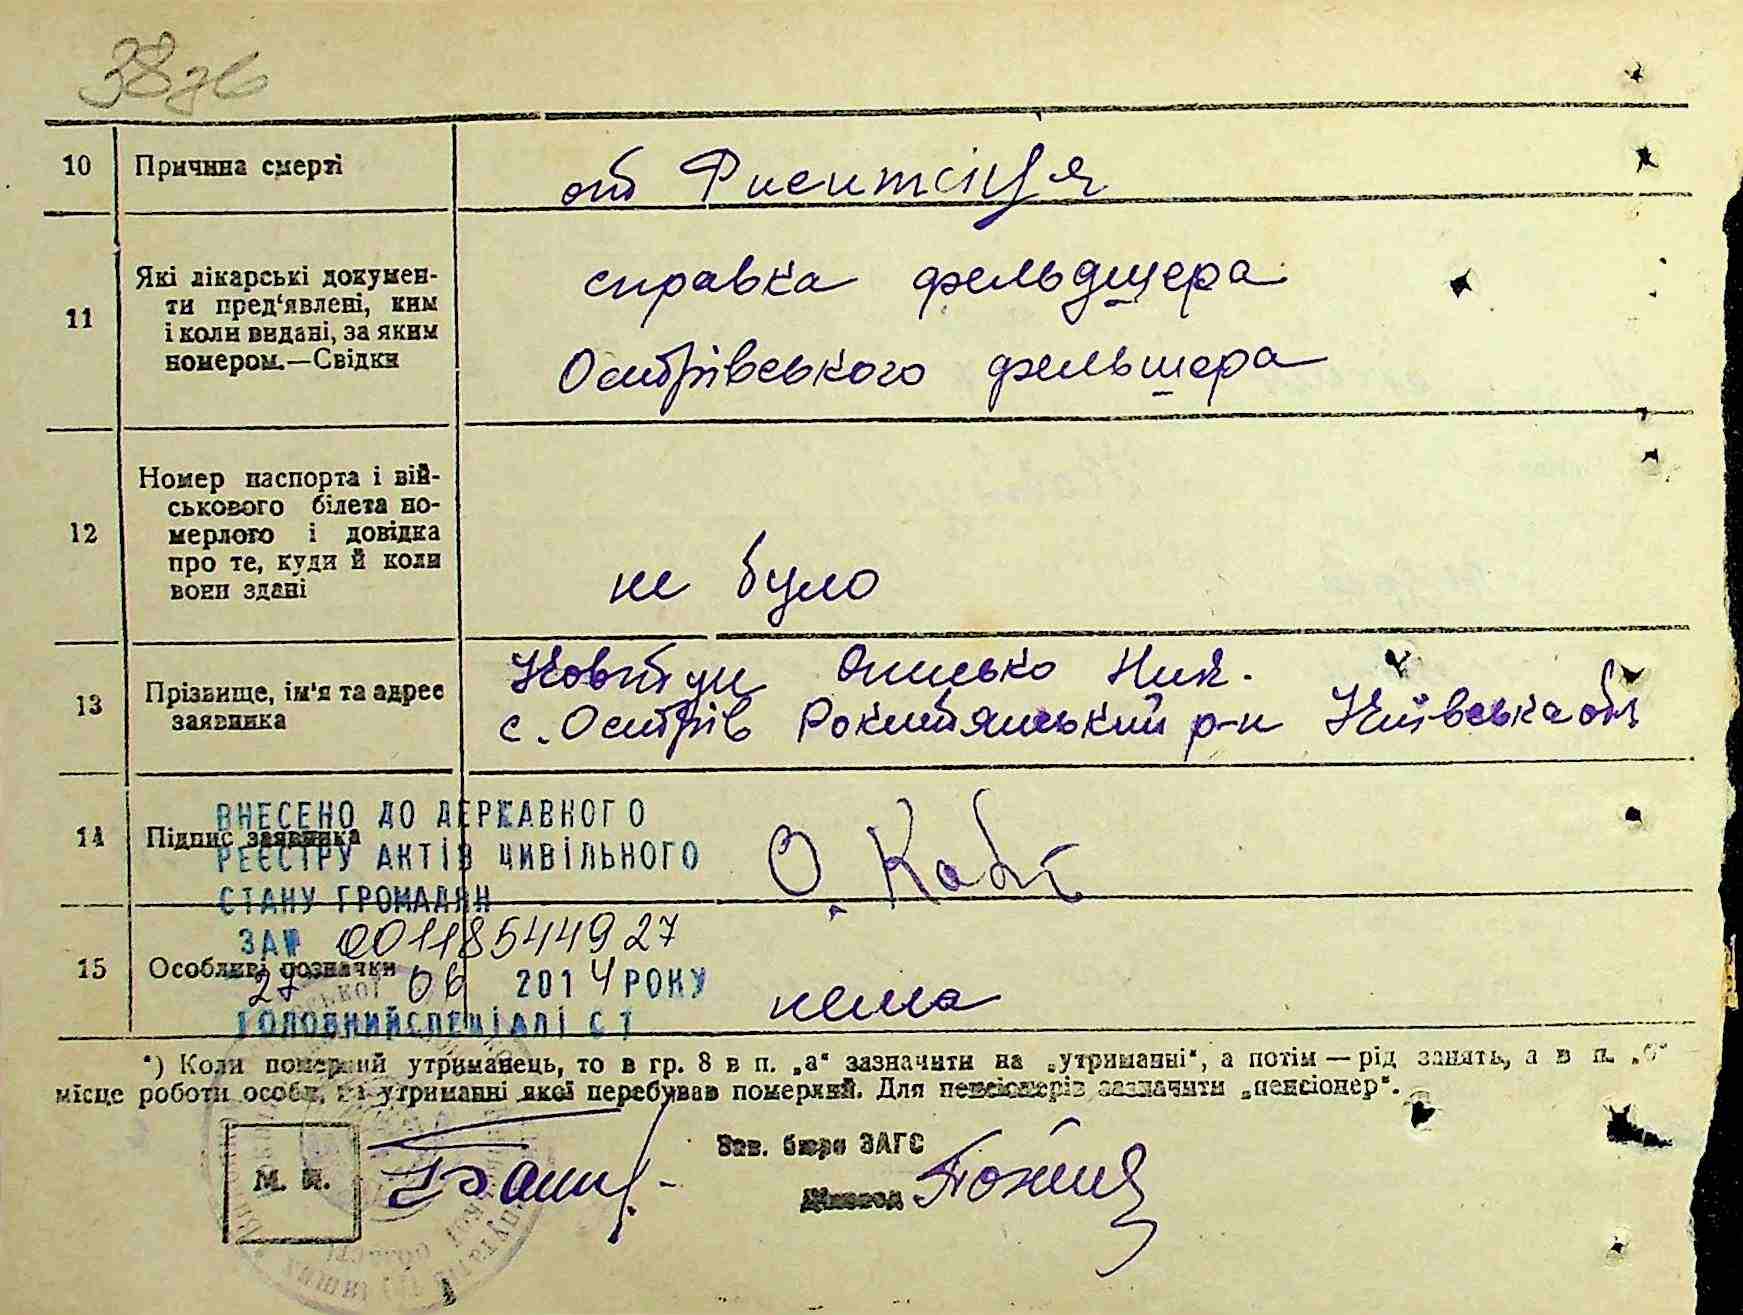 38зв
10 Причина смерті
от
11 Які лікарські докумен-
ти пред'явлені, ким
і коли видані, за яким
номером.—Свідки
справка фельдшера
Острівського фельшера
12 Номер паспорта і вій-
ськового білета по-
мерлого і довідка
про те, куди й коли
вони здані
не було
13 Прізвище, ім'я та адрес
заявника
Ковтун Ник.
с. Острів Рокитянський р-н Київська обл
14 Підпис заявника
О. Ковт
ВНЕСЕНО ДО ДЕРЖАВНОГО
РЕЄСТРУ АКТІВ ЦИВІЛЬНОГО
СТАНУ ГРОМАДЯН
ЗА № 00118544927
27 06 2014 РОКУ
ГОЛОВНИЙ СПЕЦІАЛІСТ
15 Особливі позначки
нема
*) Коли померлий утриманець, то в гр. 8 в п. „а“ зазначити на „утриманні“, а потім — рід занять, а в п. „б“
місце роботи особи, на утриманні якої перебував померлий. Для пенсіонерів зазначити „пенсіонер“.
Зав. бюро ЗАГС
М. П.
Діловод